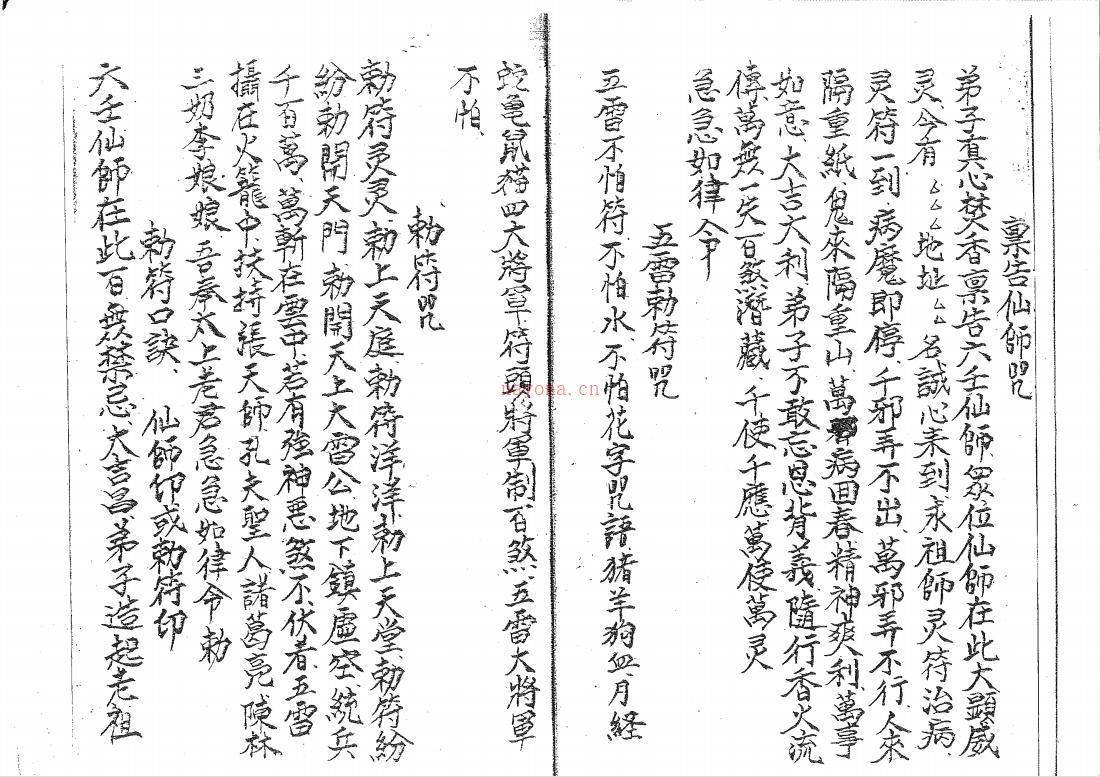 稟告仙師咒
弟子真心焚香稟告六壬仙師眾位仙師在此大顕威
灵今有厶厶厶地址厶厶名誠心来到求祖師灵符治病
灵符一到病魔即停千邪弄不出萬邪弄不行人來
隔重紙鬼來隔重山萬病回春精神爽利萬事
如意大吉大利弟子不敢忘恩背義隨行香火流
傳萬無一失百煞潛藏千使千應萬使萬灵
急急如律令
五雷勅符咒
五雷不怕符不怕水不怕花字咒語猪羊狗血月経
蛇亀鼠猫四大將軍符頭將軍制百煞五雷大將軍
不怕
勅符咒
勅符灵灵勅上天庭勅符洋洋勅上天堂勅符紛
紛勅開天門勅開天上大雷公地下鎮虛空統兵
千百萬萬斬在雲中若有強神悪煞不伏者五雷
攝在火籠中扶持張天師孔夫聖人諸葛亮陳林
三奶李娘娘吾奉太上老君急急如律令勅
勅符口訣 仙師印或勅符印
六壬仙師在此百無禁忌大吉昌弟子造起老祖
noyona.cn